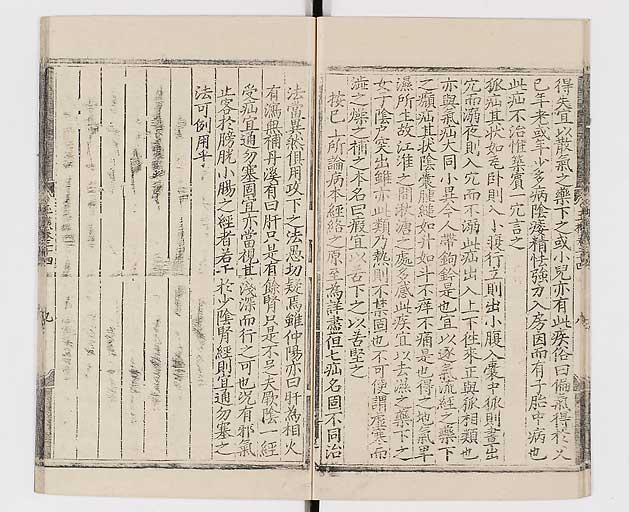 得失宜以散氣之藥下之或小兒亦有此疾俗曰偏氣得於父
已年老或年少多病陰痿精怯強力入房因而有子胎中病也
此疝不治惟築賓一穴言之
狐疝其狀如瓦臥則入小腹行立則出小腹入囊中狐則晝出
穴而溺夜則入穴而不溺此疝出入上下往來正與狐相類也
亦與氣疝大同小異今人帶鉤鈐是也宜以逐氣流經之藥下
之㿗疝其狀陰囊腫縋如升如斗不痒不痛是也得之地氣卑
濕所生故江淮之間湫溏之處多感此疾宜以去濕之藥下之
女子陰户突出雖亦此類乃熱則不禁固也不可便謂虛寒而
澁之燥之補之本名曰瘕宜以苦下之以苦堅之
按已上所論病本經絡之原至為詳盡但七疝名固不同治
法當異然俱用攻下之法愚切疑焉雖仲陽亦曰肝為相火
有瀉無補丹溪有曰肝只是有餘腎只是不足夫厥陰一經
受疝宜通勿塞固宜亦當視其淺深而行之可也況有邪氣
止客於膀胱小腸之經者若干於少陰腎經則宜通勿塞之
法可例用乎